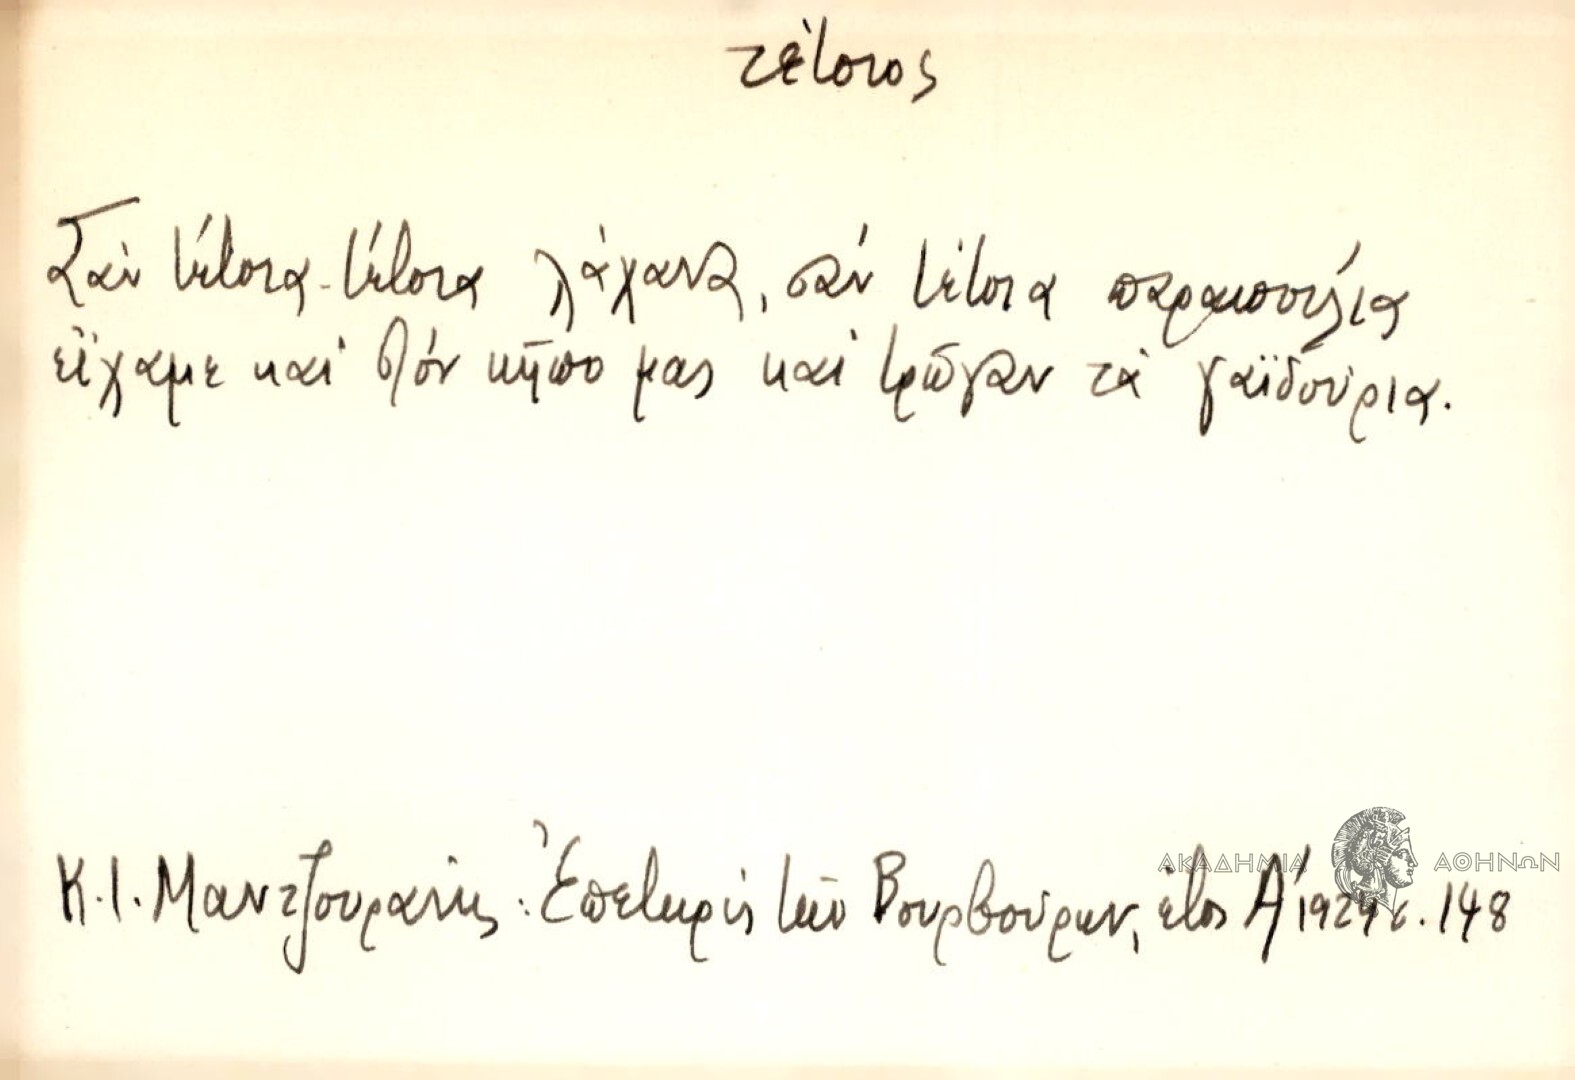 τέτοιος
Σὰν τέτοια-τέτοια λάχανα, σὰν τέτοια παραπούλια
εἴχαμε καὶ στὸν κῆπο μας καὶ τρῶγαν τὰ γαϊδούρια.
Κ.Ι. Μαντζουράνης: Ἐπετηρὶς τῶν Βουρβούρων, ἔτος Α΄ 1929 σ. 148
ΑΚΑΔΗΜΙΑ ΑΘΗΝΩΝ